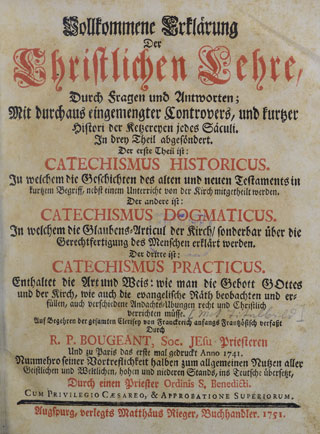 Vollkommene Erklärung
Der
Christlichen Lehre,
Durch Fragen und Antworten;
Mit durchaus eingemengter Controvers, und kurtzer
Histori der Ketzereyen jedes Säculi.
In drey Theil abgesöndert.
Der erste Theil ist:
CATECHISMUS HISTORICUS.
In welchem die Geschichten des alten und neuen Testaments in
kurtzem Begriff, nebst einem Unterricht von der Kirch mitgetheilt werden.
Der andere ist:
CATECHISMUS DOGMATICUS.
In welchem die Glaubens-Articul der Kirch/ sonderbar über die
Gerechtfertigung des Menschen erklärt werden.
Der dritte ist:
CATECHISMUS PRACTICUS.
Enthaltet die Art und Weis: wie man die Gebott GOttes
und der Kirch, wie auch die evangelische Räth beobachten und er-
füllen, auch verschiedene Andachts-Übungen recht und Christlich
verrichten müsse.
Auf Begehren der gesamten Clerisey von Franckreich anfangs Frantzösisch verfaßt
Durch
R. P. BOUGEANT, Soc. JEsu Priesteren
Und zu Paris das erste mal gedruckt Anno 1741.
Nunmehro seiner Vortreflichkeit halben zum allgemeinen Nutzen aller
Geistlichen und Weltlichen, hohen und niederen Stands, ins Teutsche übersetzt,
Durch einen Priester Ordinis S. Benedicti.
CUM PRIVILEGIO CÆSAREO, & APPROBATIONE SUPERIORUM.
Augspurg, verlegts Matthäus Rieger, Buchhandler. 1751.